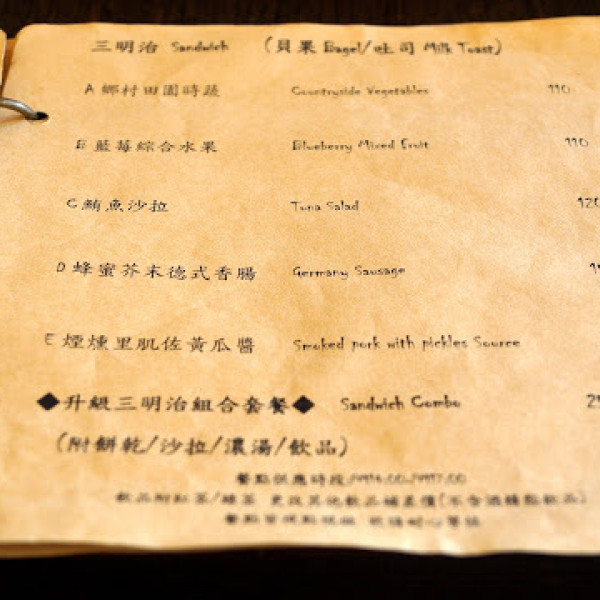 三明治 Sandwich (貝果 Bagel/吐司 Milk Toast)
A 鄉村田園時蔬 Countryside Vegetables 110
B 藍莓綜合水果 Blueberry Mixed Fruit 110
C 鮪魚沙拉 Tuna Salad 120
D 蜂蜜芥末德式香腸 Germany Sausage
E 煙燻里肌佐黃瓜醬 Smoked pork with pickles Source
◆升級三明治組合套餐◆ Sandwich Combo
(附餅乾/沙拉/濃湯/飲品)
餐點供應時段
飲品附紅茶/綠茶 更改其他飲品補差價(不含酒精類飲品)
餐點皆現點現做 敬請耐心等候